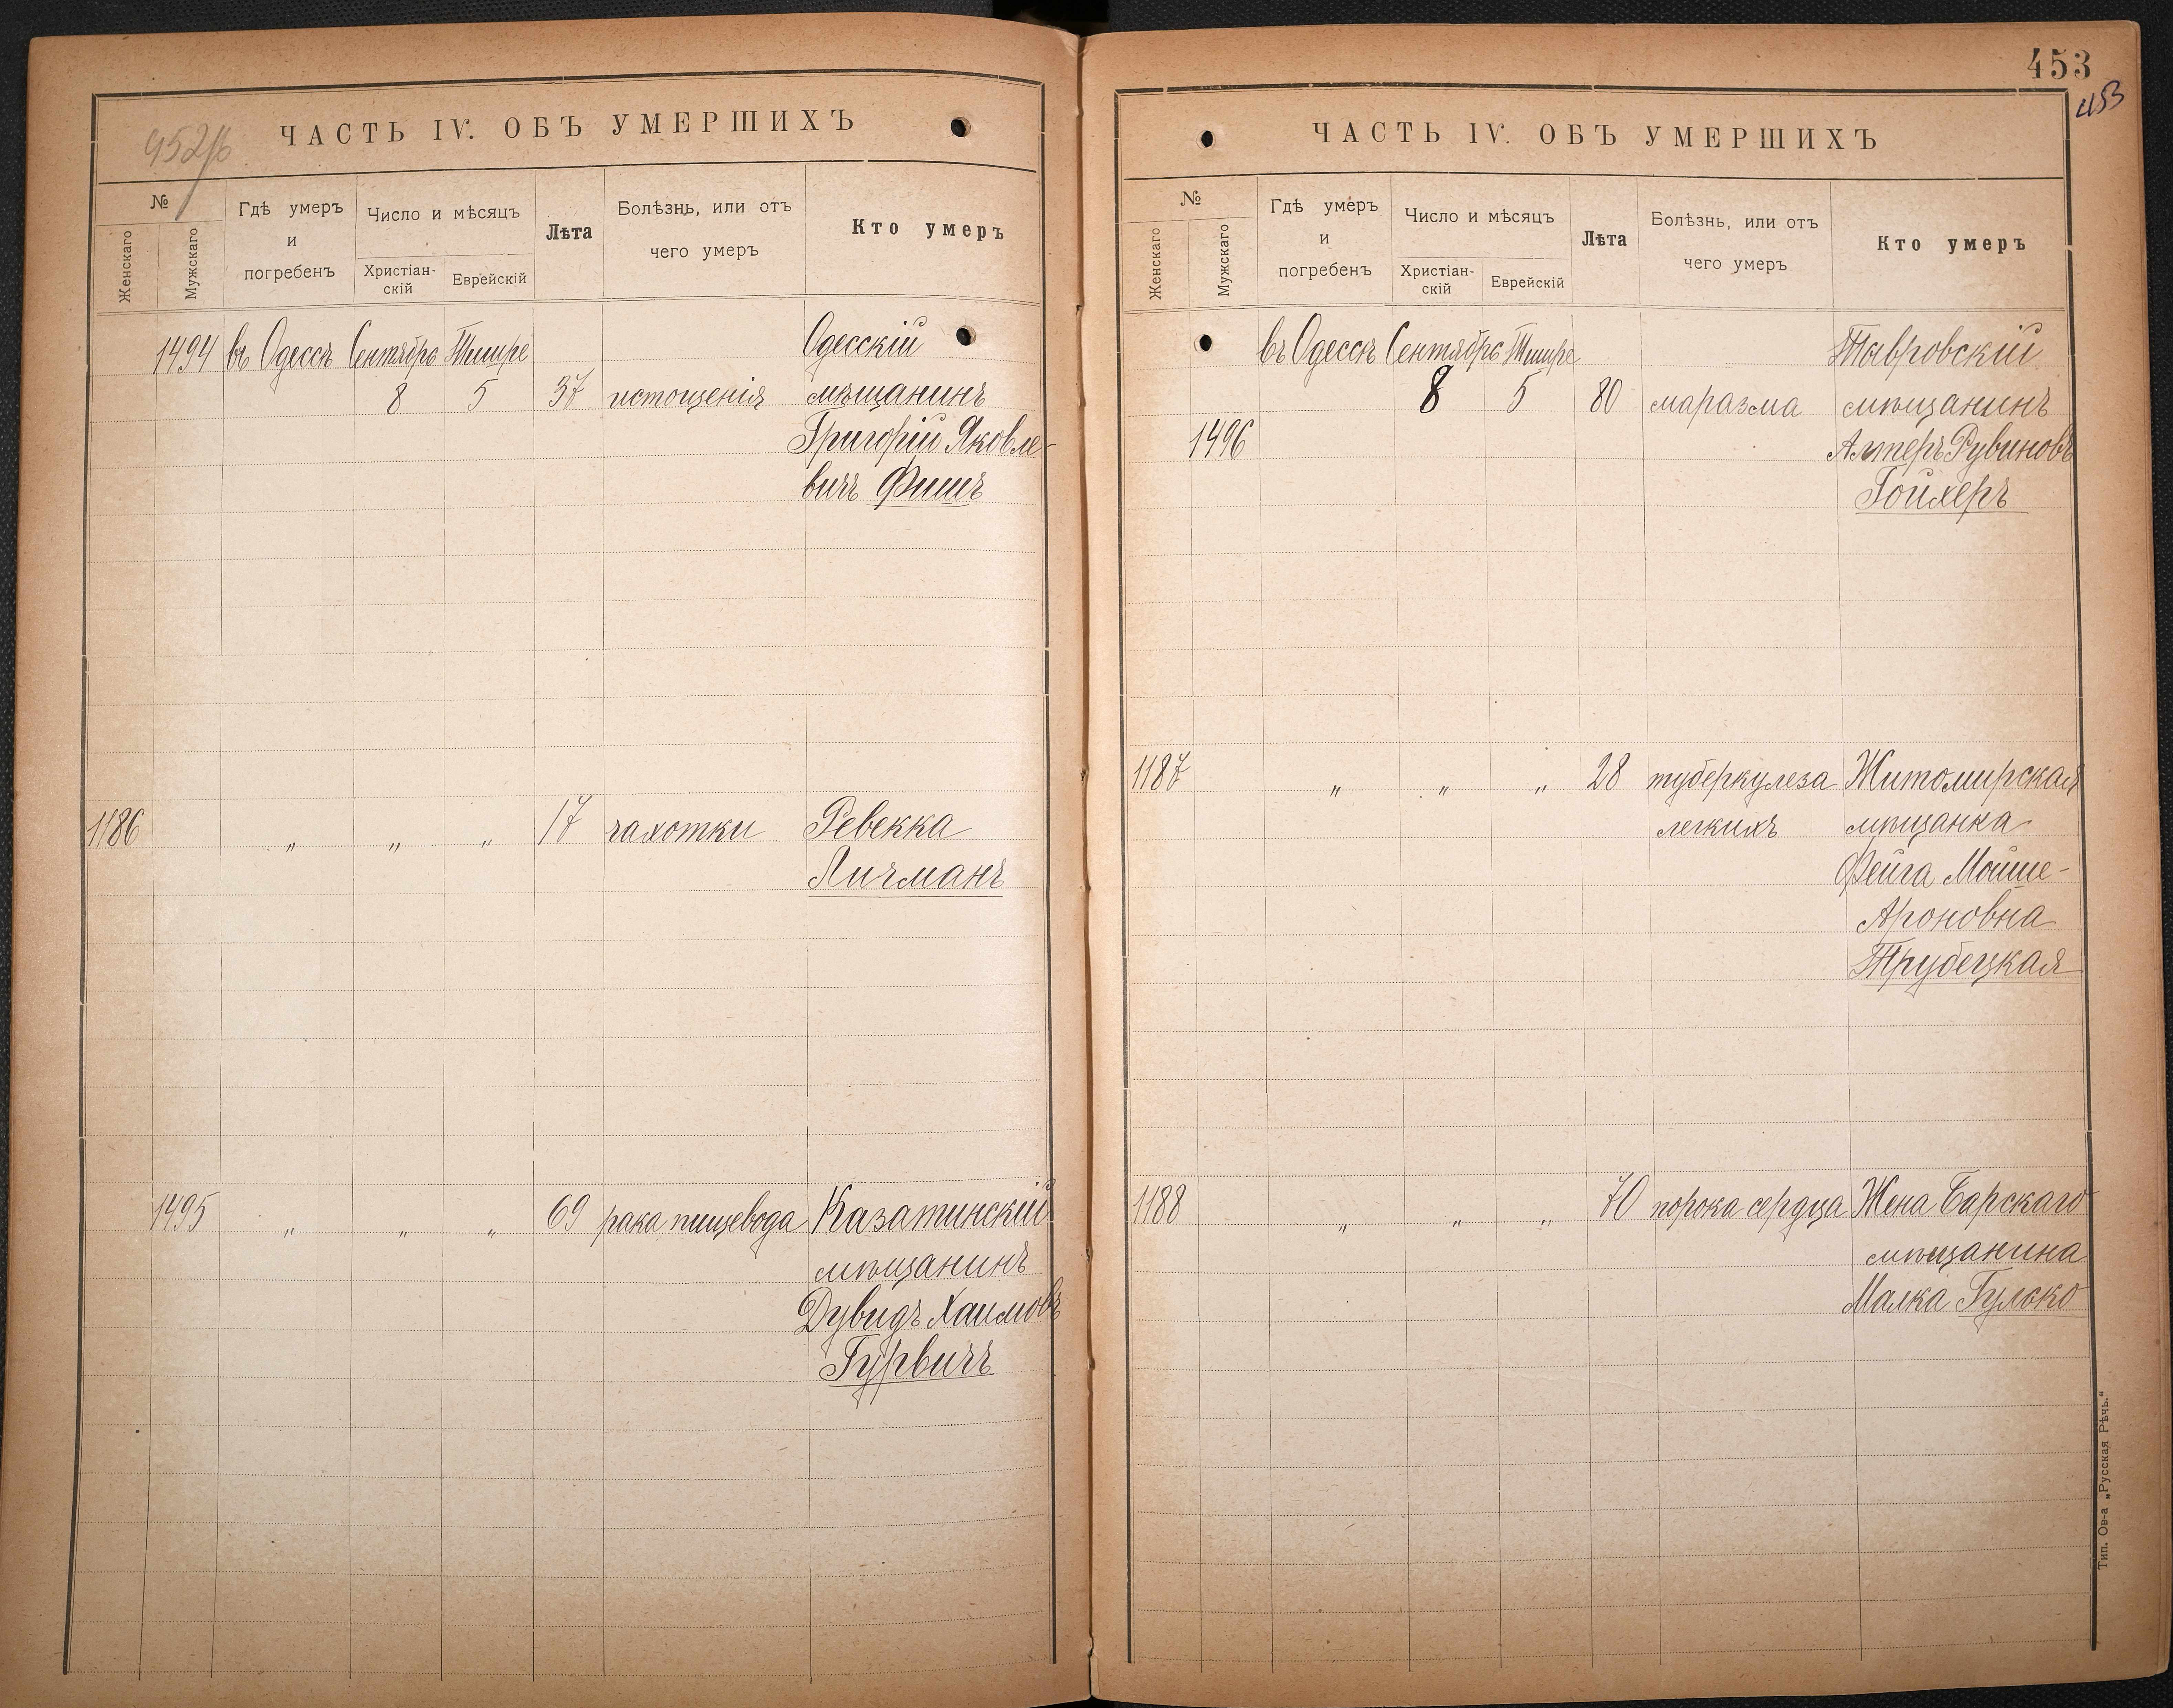 452/б
ЧАСТЬ IV. ОБЪ УМЕРШИХЪ
№
Женскаго
Мужскаго
Гдѣ умеръ
и
погребенъ
Число и мѣсяцъ
Христіан-
скій
Еврейскій
Лѣта
Болѣзнь, или отъ
чего умеръ
Кто умеръ
1494 въ Одессѣ Сентября Тишре Одесскій
8 5 37 истощенія мѣщанинъ
Григорій Яковле-
вичъ Фишъ
1186 " " " 17 чахотки Ревекка
Личманъ
1495 " " " 69 рака пищевода Казатинскій
мѣщанинъ
Дувидъ Хаимовъ
Гурвичъ
453
453
ЧАСТЬ IV. ОБЪ УМЕРШИХЪ
№
Женскаго
Мужскаго
Гдѣ умеръ
и
погребенъ
Число и мѣсяцъ
Христіан-
скій
Еврейскій
Лѣта
Болѣзнь, или отъ
чего умеръ
Кто умеръ
въ Одессѣ Сентября Тишре
8 5 80 маразма мѣщанинъ
1496 Алтеръ Рувиновъ
Гойхеръ
1187 " " " 28 туберкулеза Житомирская
легкихъ мѣщанка
Фейга Мойше-
Ароновна
Трубецкая
1188 " " " 70 порока сердца Жена Барскаго
мѣщанина
Малка Гулько
Тип. Ов-а „Русская Рѣчь."